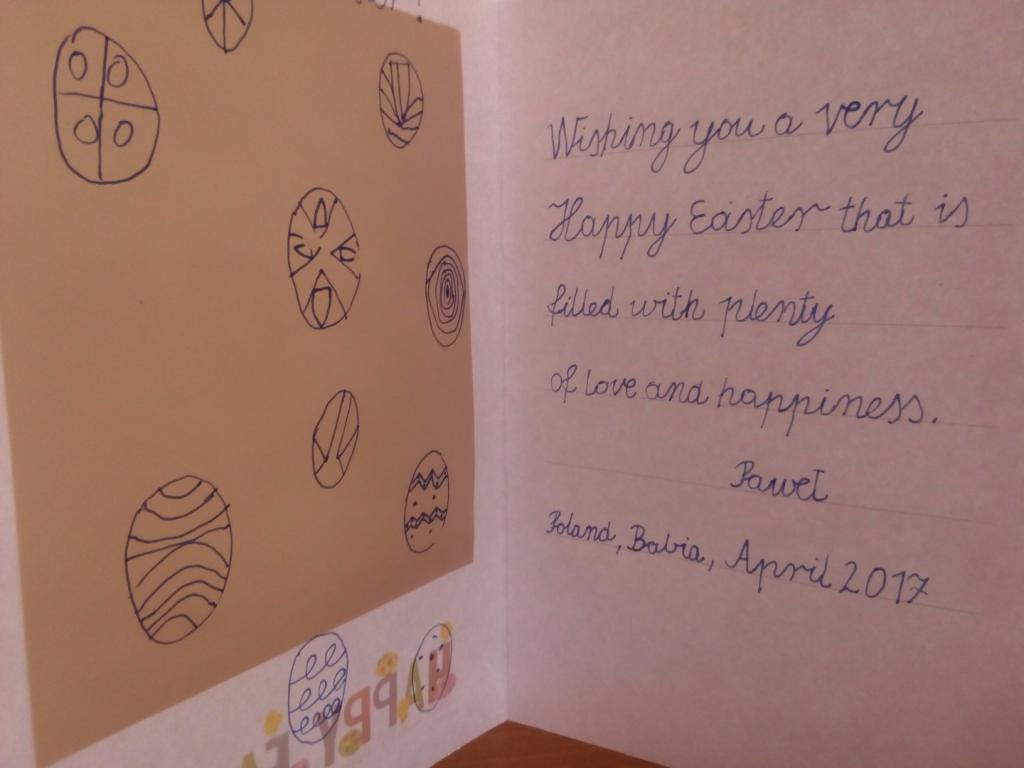 Wishing you a very
Happy Easter that is
filled with plenty
of love and happiness.
Paweł
Poland, Babia, April 2017
HAPPY EA